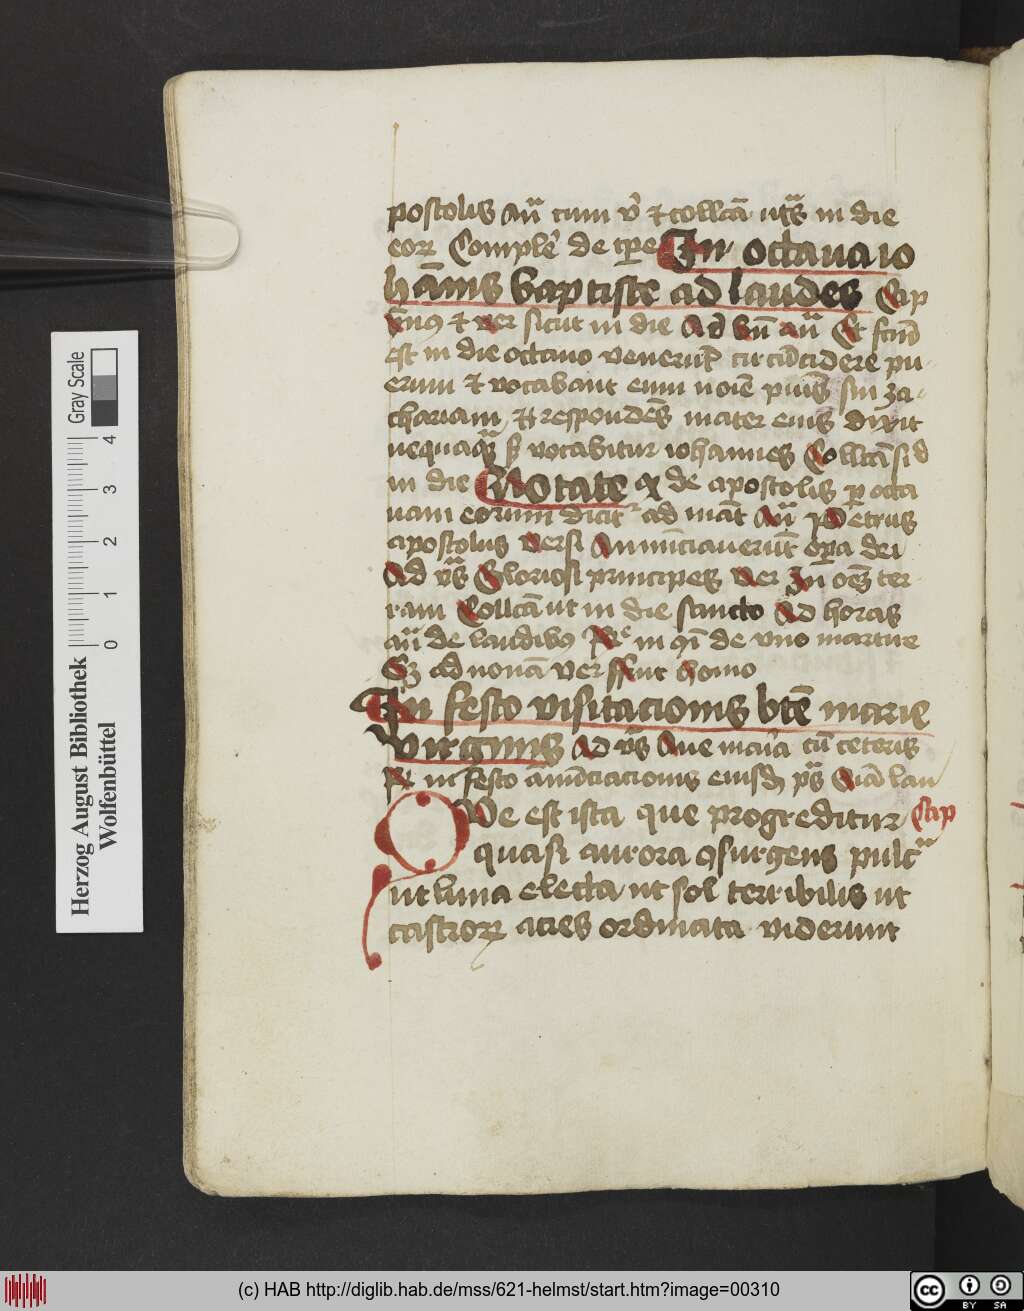 postolis añ cum v̉ ⁊ collcā ut sͣ in die
eoꝝ Complet̉ de tꝑe In octaua io
hānis baptiste ad laudes Cap
ẏmꝰ ⁊ ver sicut in die Ad bn̄ añ Et fcm̄
est in die octauo venerūt circūcidere pu
erum ⁊ vocabant eum noīe pr̄is sui za
chariam ⁊ respondēs mater eius dixit
nequaqͣ sꝫ vocabitur iohannes Collcā sic
in die Notate ꝙ de apostolis ꝑ octa
uam eorum dicitͬ ad mat̄ añ Petrus
apostolus versi Annunciauerūt oꝑa dei
Ad vs̄ Gloriosi principes ver In oēm ter
ram Collcā ut in die sancto Ad horas
añ de laudibꝰ Rͤ in qͥ de vno martire
Sꝫ ad nonā ver ffiut homo
In festo visitacionis btē marie
virginis Ad vs̄ Aue maria cū ceteris
Rͤ in festo annūciacionis eiusdē vs̄ Quā lau
Que est ista que progreditur Cap
quasi aurora ꝯsurgens pulcͣ
ut luna electa ut sol terribilis ut
castroꝝ acies ordinata viderunt
Herzog August Bibliothek
Wolfenbüttel
Gray Scale
0 1 2 3 4
(c) HAB http://diglib.hab.de/mss/621-helmst/start.htm?image=00310
cc BY SA